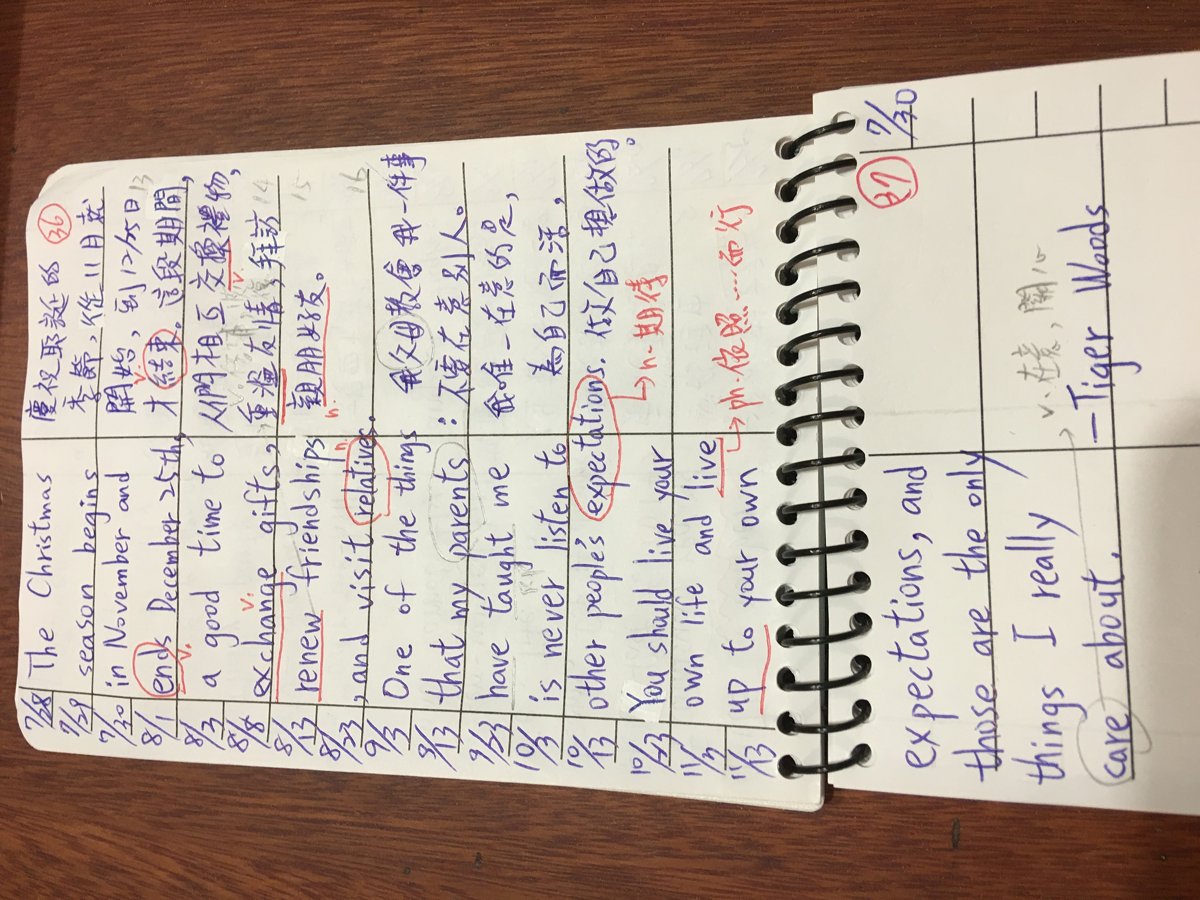 7/28
7/29
7/30
8/1
8/3
8/8
8/13
8/23
9/3
9/13
9/23
10/3
10/13
10/23
11/3
11/13
The Christmas
season begins
in November and
ends December 25th,
v.
a good time to
exchange gifts,
v.
renew friendships
, and visit relatives.
n
One of the things
that my parents
have taught me
is never listen to
other people's expectations.
You should live your
own life and live
up to your own
36
慶祝聖誕的
季節,從11月就
開始,到12/25日
13
才結束。這段期間,
v.
人們相互交換禮物,
v.
重溫友情,拜訪
14
親朋好友。
n
15
16
我父母教會我一件事
:不要在意別人。
我唯一在意的是,
為自己而活,
做好自己想做的。
→n.期待
→ph.依照……而行
37
7/30
expectations, and
those are the only
things I really
care about.
—Tiger Woods
v.在意,關心